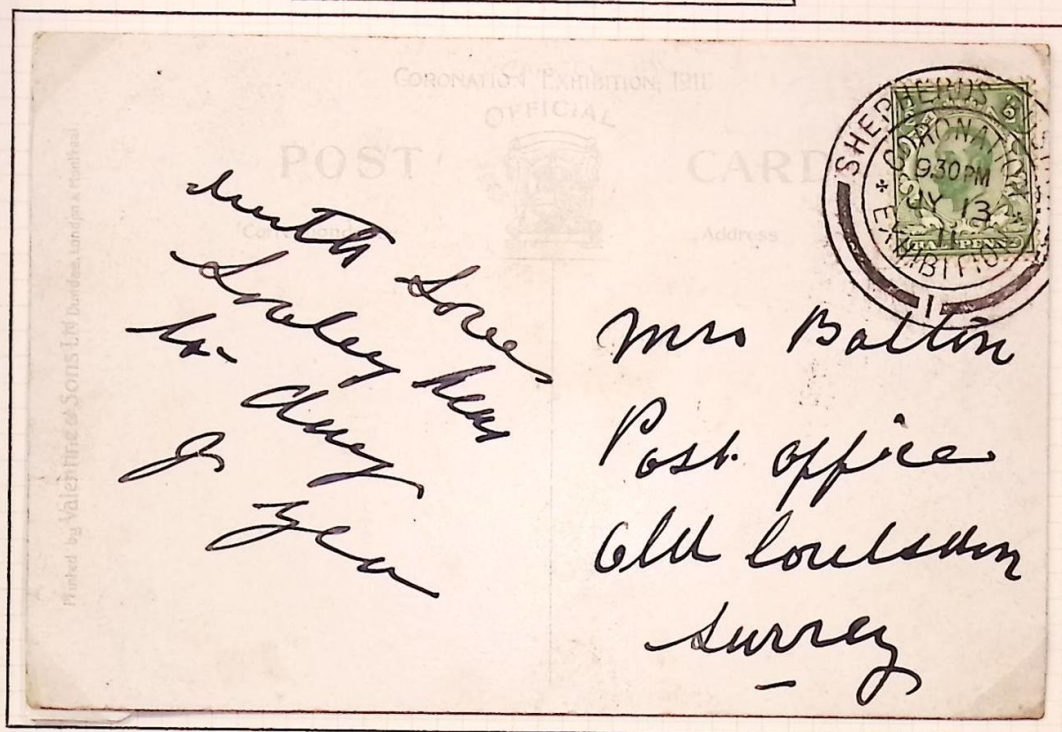 CORONATION EXHIBITION, 1911
OFFICIAL
POST CARD
Correspondence
Address
Printed by Valentine & Sons Ltd Dundee, London & Montreal
SHEPHERDS BUSH
CORONATION
9.30 PM
JY 13
11
EXHIBITION
1
HALFPENNY
With Love
Lovley here
to day
Mrs Bolton
Post office
Old Coulsdon
Surrey